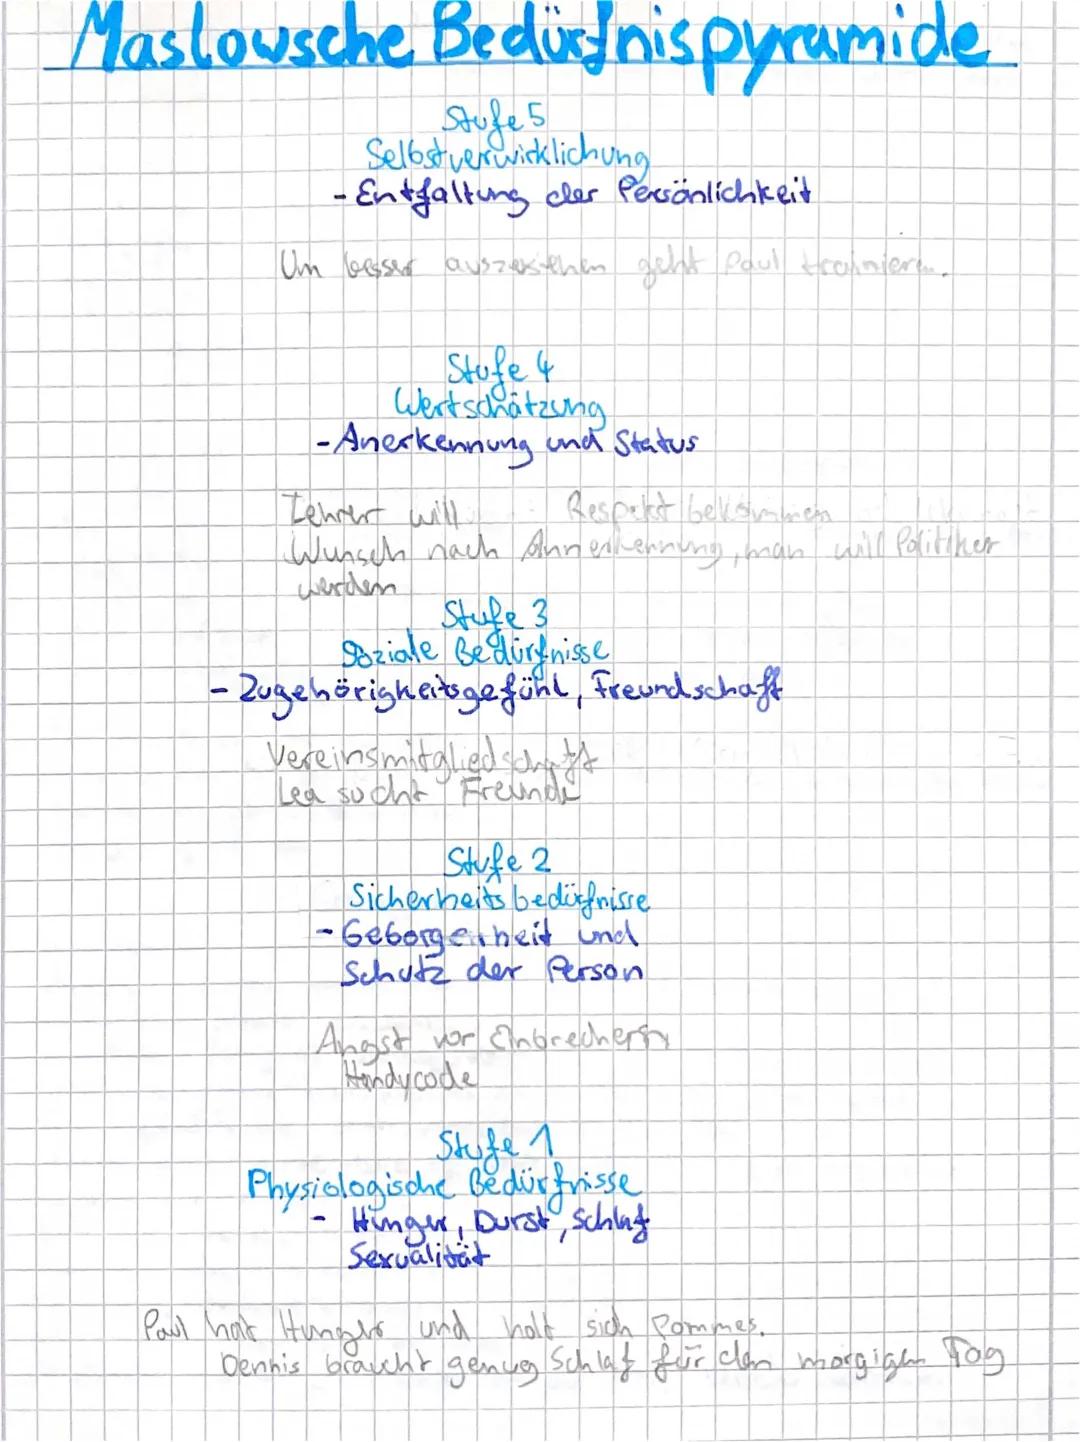 Maslowsche Bedürfnispyramide
Stufe 5
Selbstverwirklichung
- Entfaltung der Persönlichkeit
Um besser auszusehen geht Paul trainieren.
Stufe 4
Wertschätzung
- Anerkennung und Status
Lehrer will Respekt bekommen
Wunsch nach Annerkennung, man will Politiker
werden
Stufe 3
Soziale Bedürfnisse
- Zugehörigkeitsgefühl, Freundschaft
Vereinsmitgliedschaft
Lea sucht Freunde
Stufe 2
Sicherheitsbedürfnisse
- Geborgenheit und
Schutz der Person
Angst vor Einbrechern
Handycode
Stufe 1
Physiologische Bedürfnisse
- Hunger, Durst, Schlaf
Sexualität
Paul hat Hunger und holt sich Pommes.
Dennis braucht genug Schlaf für den morgigen Tag